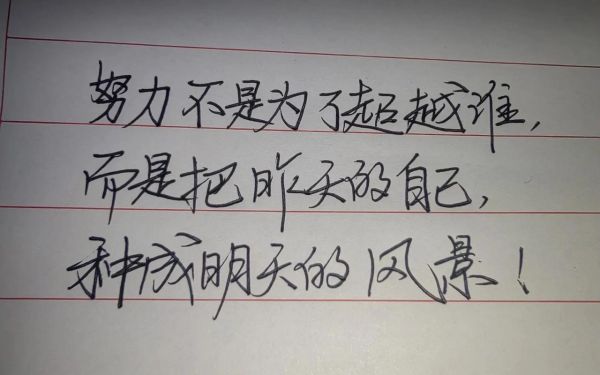 努力不是为了超越谁,
而是把昨天的自己,
种成明天的风景!